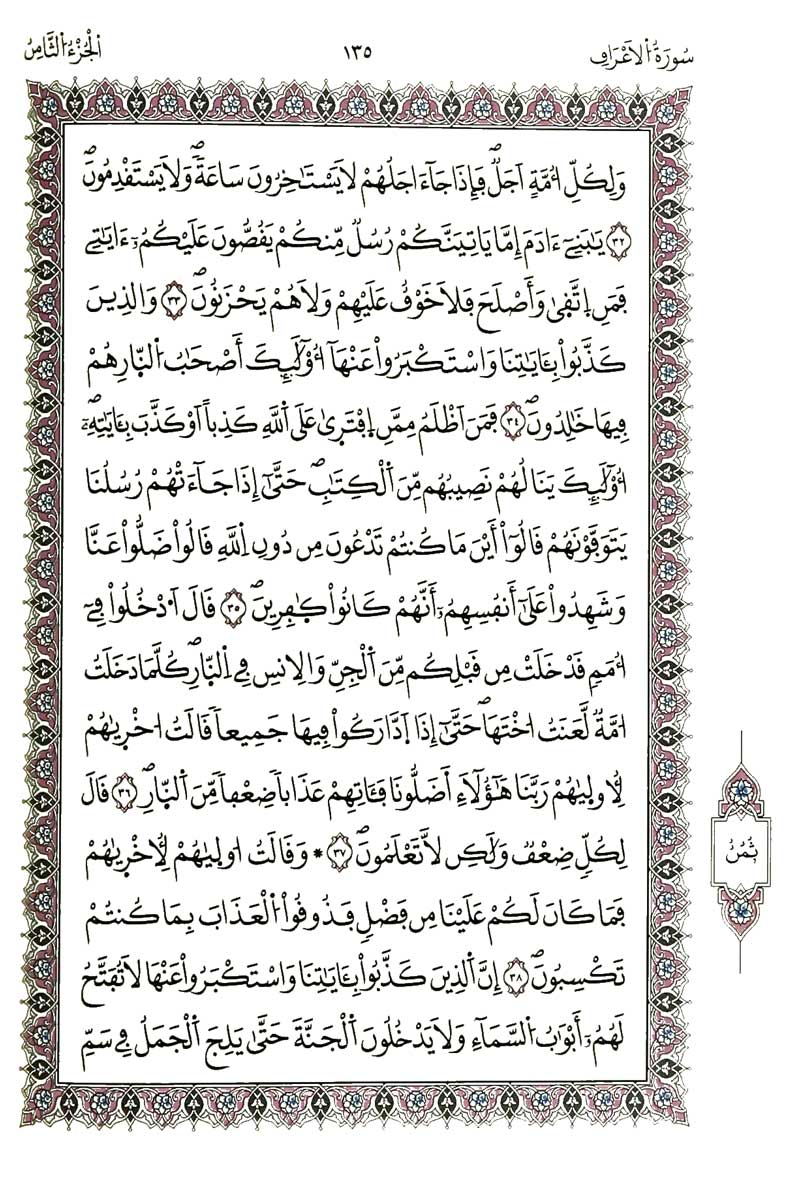 سُورَةُ الَاعْرَافِ
١٣٥
الجُزْءُ الثَّامِنُ
وَلِكُلِّ أُمَّةٍ اَجَلٞ فَإِذَا جَآءَ اجَلُهُمْ لَا يَسْتَـٰخِرُونَ سَاعَةٗ وَلَا يَسْتَقْدِمُونَ
٣٢ يَـٰبَنِےٓ ءَادَمَ إِمَّا يَاتِيَنَّكُمْ رُسُلٞ مِّنكُمْ يَقُصُّونَ عَلَيْكُمُۥٓ ءَايَـٰتِے
فَمَنِ اِتَّقۭىٰ وَأَصْلَحَ فَلَا خَوْفٌ عَلَيْهِمْ وَلَا هُمْ يَحْزَنُونَ ٣٣ وَالذِينَ
كَذَّبُواْ بِـَٔايَـٰتِنَا وَاسْتَكْبَرُواْ عَنْهَآ أُوْلَـٰٓئِكَ أَصْحَـٰبُ اُلنّ۪ارِ هُمْ
فِيهَا خَـٰلِدُونَ ٣٤ فَمَنَ اَظْلَمُ مِمَّنِ اِفْتَر۪ىٰ عَلَى اَللَّهِ كَذِباً اَوْ كَذَّبَ بِـَٔايَـٰتِهِۦٓ
أُوْلَـٰٓئِكَ يَنَالُهُمْ نَصِيبُهُم مِّنَ اَلْكِتَـٰبِ حَتَّىٰٓ إِذَا جَآءَتْهُمْ رُسُلُنَا
يَتَوَفَّوْنَهُمْ قَالُوٓاْ أَيْنَ مَا كُنتُمْ تَدْعُونَ مِن دُونِ اِللَّهِ قَالُواْ ضَلُّواْ عَنَّا
وَشَهِدُواْ عَلَىٰٓ أَنفُسِهِمُۥٓ أَنَّهُمْ كَانُواْ كٰ۪فِرِينَ ٣٥ قَالَ اَدْخُلُواْ فِےٓ
أُمَمٖ قَدْ خَلَتْ مِن قَبْلِكُم مِّنَ اَلْجِنِّ وَالِانسِ فِے اِلنّ۪ارِ كُلَّمَا دَخَلَتُ
اُمَّةٞ لَّعَنَتُ اخْتَهَا حَتَّىٰٓ إِذَا اَ۪دَّارَكُواْ فِيهَا جَمِيعاٗ قَالَتُ اخْر۪ىٰهُمْ
لِأُول۪ىٰهُمْ رَبَّنَا هَـٰٓؤُلَآءِ اَضَلُّونَا فَـَٔاتِهِمْ عَذَاباٗ ضِعْفاٗ مِّنَ اَلنّ۪ارِ ٣٦ قَالَ
لِكُلّٖ ضِعْفٞ وَلَـٰكِن لَّا تَعْلَمُونَ ٣٧ * وَقَالَتُ اول۪ىٰهُمْ لِأُخْر۪ىٰهُمْ
فَمَا كَانَ لَكُمْ عَلَيْنَا مِن فَضْلٖ فَذُوقُواْ اُلْعَذَابَ بِمَا كُنتُمْ
تَكْسِبُونَ ٣٨ إِنَّ اَلذِينَ كَذَّبُواْ بِـَٔايَـٰتِنَا وَاسْتَكْبَرُواْ عَنْهَا لَا تُفَتَّحُ
لَهُمُۥٓ أَبْوَٰبُ اُلسَّمَآءِ وَلَا يَدْخُلُونَ اَلْجَنَّةَ حَتَّىٰ يَلِجَ اَلْجَمَلُ فِے سَمِّ
ثُمُنٌ